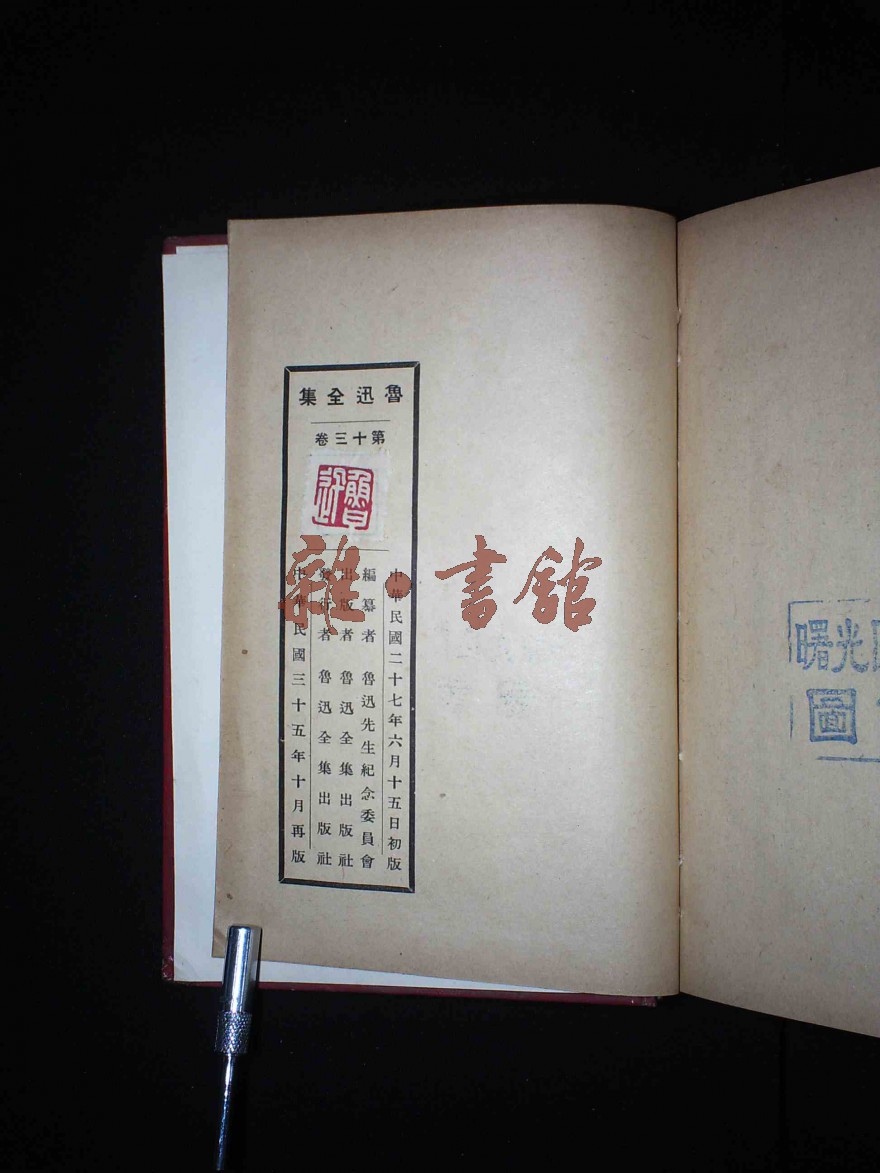 魯迅全集
第十三卷
魯迅
中華民國二十七年六月十五日初版
編纂者 魯迅先生紀念委員會
出版者 魯迅全集出版社
發行者 魯迅全集出版社
中華民國三十五年十月再版
雜·書館
曙光
圖